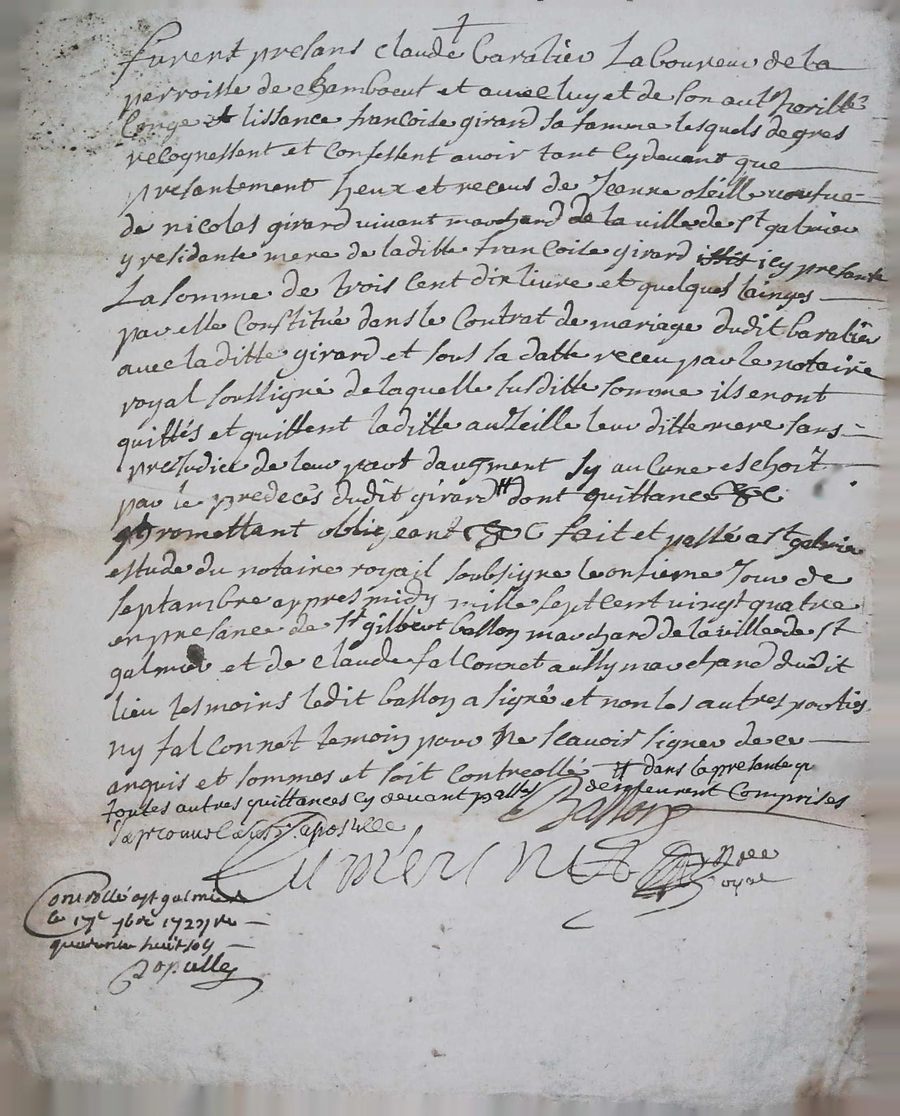 furent presans claude baralier Laboureur de la
perroisse de chambaeut et avec luy et de son authoritte
Conge et lissance francoise girard sa famme lesquels de gres
recognessent et Confessent avoir tant cy devant que
presantement heux et receus de Jeanne vefve
de nicolas girard vivant marchand de la ville de st galmier
y residante mere de laditte francoise girard icy presante
La somme de trois cent dix livre et quelques lainges
par elle Constitué dans le Contrat de mariage dudit baralier
avec laditte girard et sous sa datte receu par le notaire
royal soussigné de laquelle susditte somme ils en ont
quittés et quittent laditte leur ditte mere sans
prejudice de leur part daugment sy aucune eschoit
par le predeces dudit girard # dont quittance &c
promettant obligeant &c fait et passé a st galmier
estude du notaire royail soubsigne le onsieme Jour de
septambre appres midy mille sept cent vingt quatre
en presance de sr gilbert ballon marchand de la ville de st
galmier et de Claude falconnet aussy marchand dudit
lieu tesmoins ledit ballon a signé et non les autres parties
ny falconnet temoin pour ne scavoir signer de ce
anquis et sommes et soit controllé # dans la presante q
toutes autres quittances cy devant passes demeurent Comprises
Ballon
Nre
royal
Controllé a st galmier
le 17e 7bre 1724 re
quarante huit sol